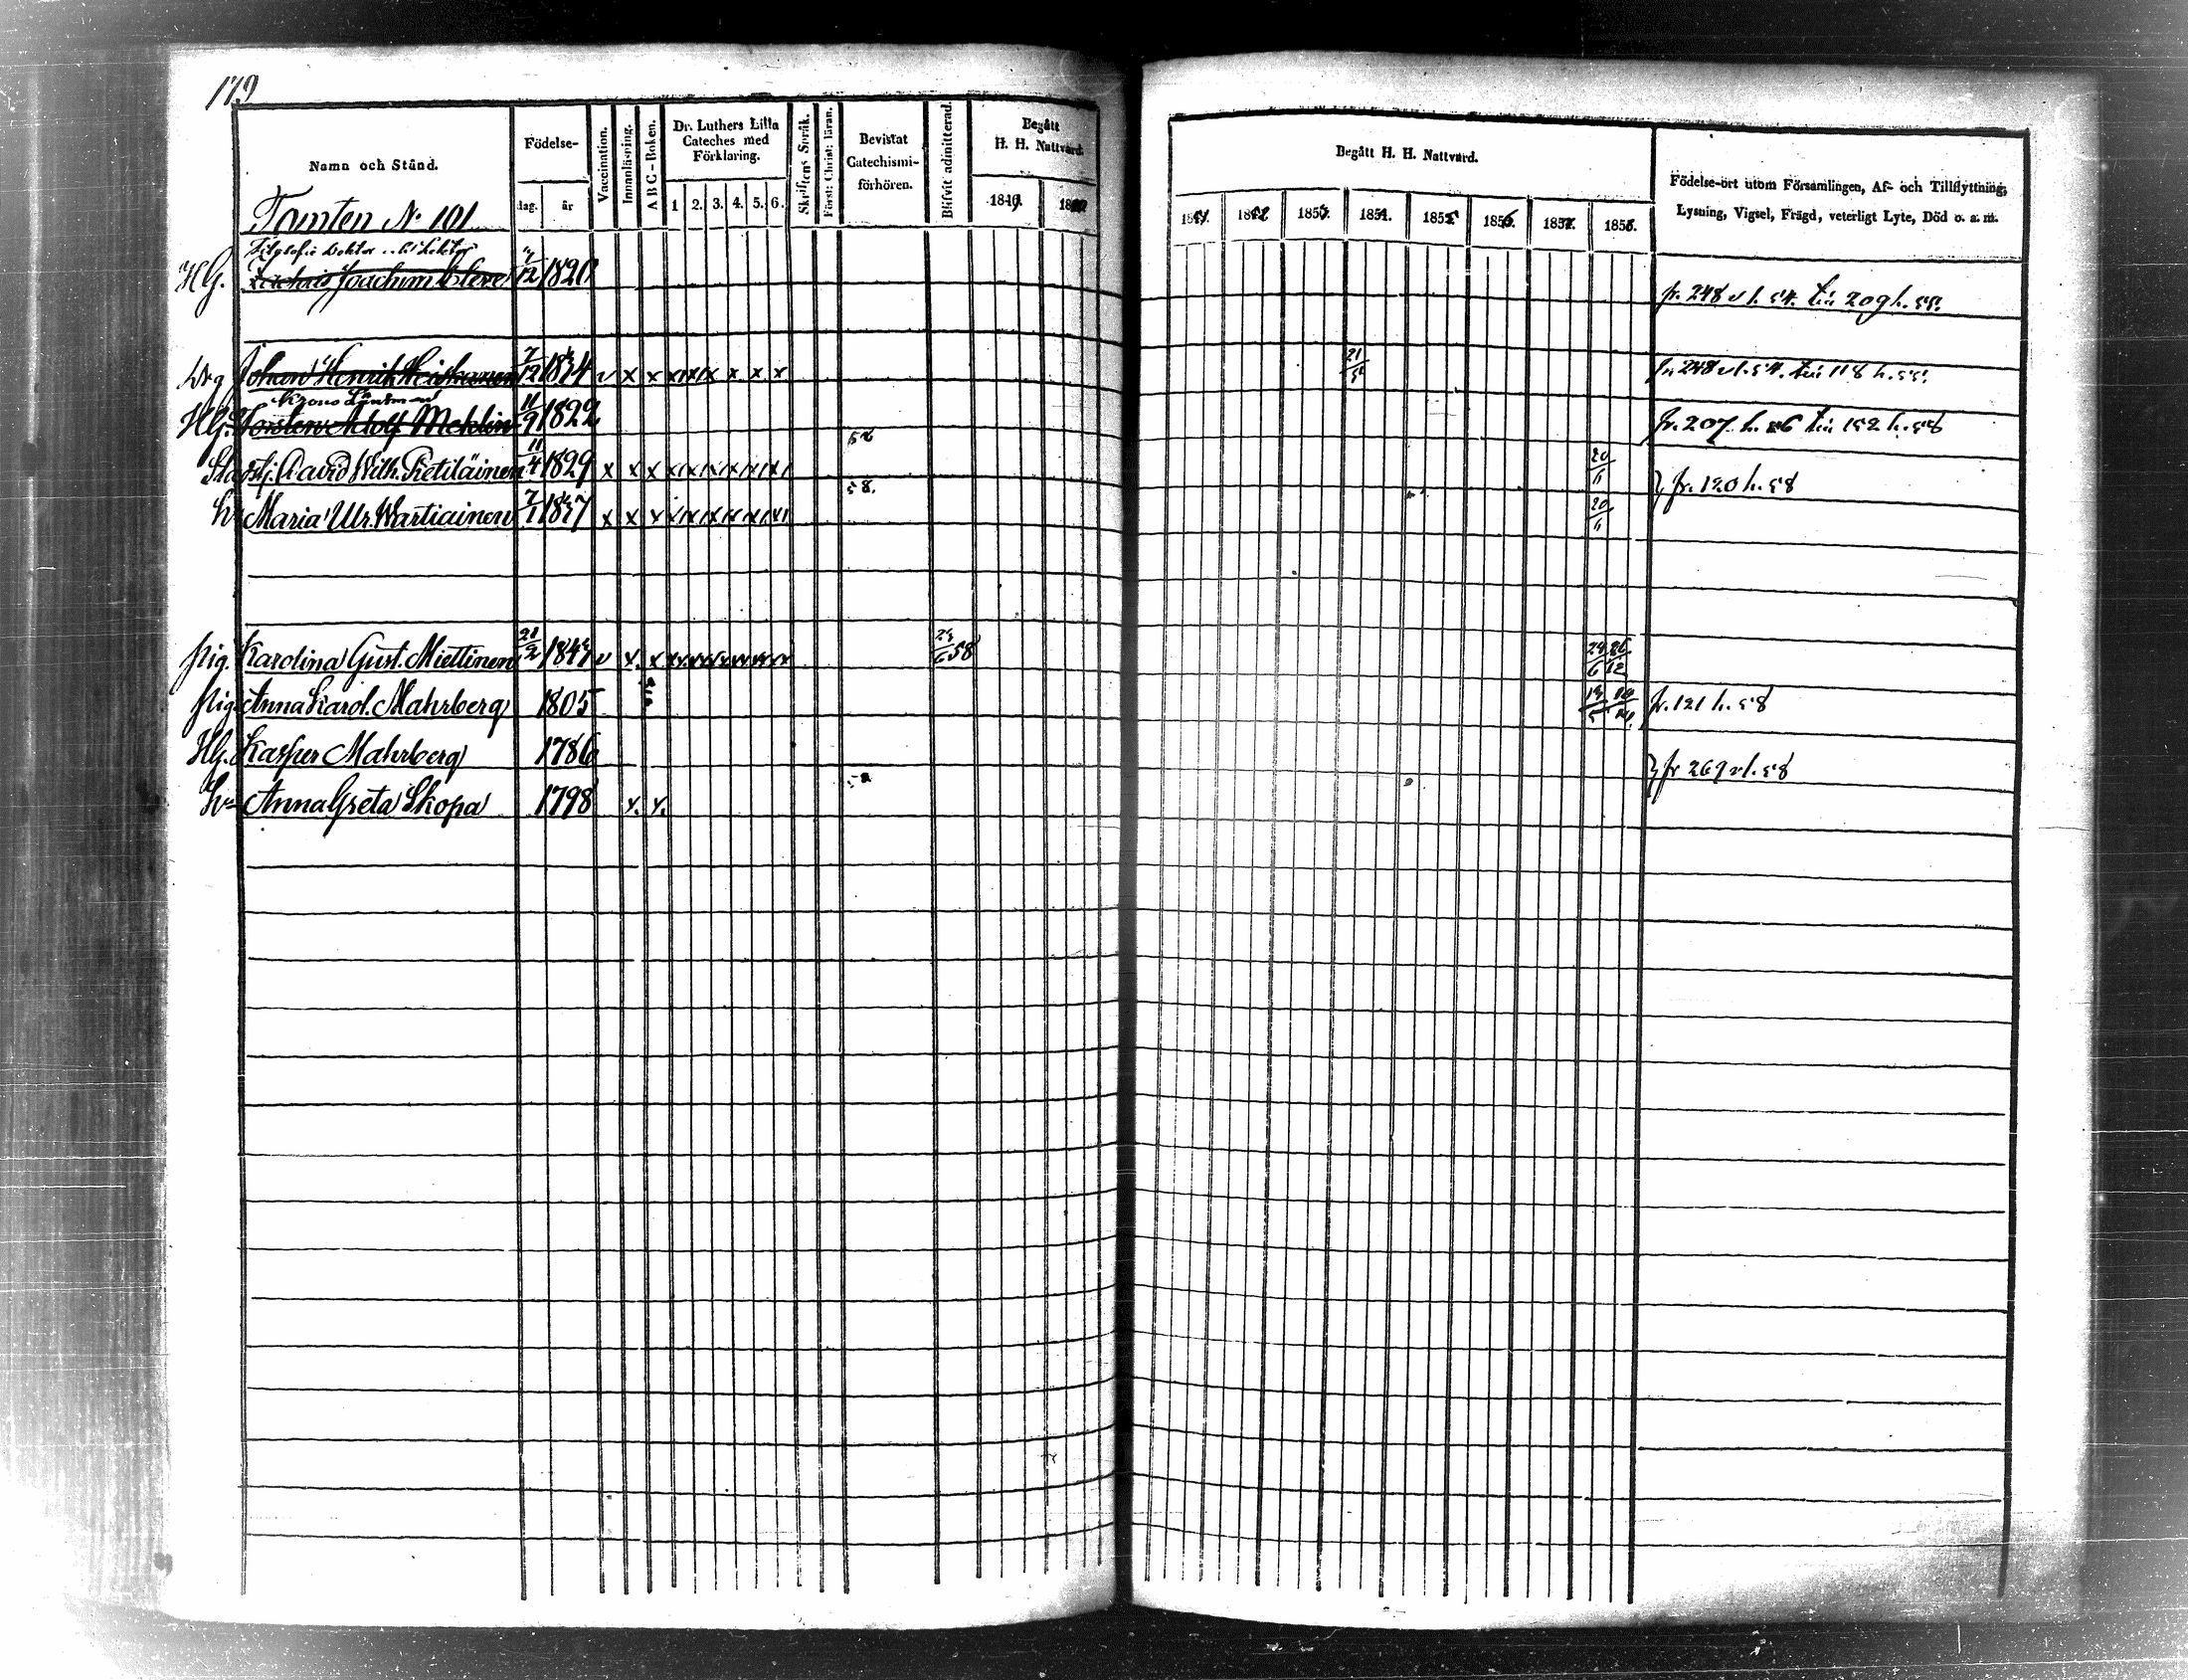 179
Namn och Stånd.
Födelse-
dag. år
Vaccination.
Innanläsning.
ABC-Boken.
Dr. Luthers Lilla Cateches med Förklaring.
1 2. 3. 4. 5. 6.
Skriftens Språk.
Först: Christ: läran.
Bevistat Catechismi-förhören.
Blifvit admitterad.
Begått H. H. Nattvard.
1849.
Begått H. H. Nattvard.
1851. 1852. 1853. 1854. 1855. 1856. 1857. 1858.
Födelse-ort utom Församlingen, Af- och Tillflyttning,
Lysning, Vigsel, Frägd, veterligt Lyte, Död o. s. m.
Tomten No 101
Filosofie Doktor
Hg. Joachim Cleve 1820 fr. 248 v h. 54. till 209 h. 55.
Drg Johan Henrik 7/12 1834 v x x x x x x x x 21/5 fr 248 v h. 54. till 118 h. 55.
Krono Länsman
Hg. Torsten Adolf Meklin 11/9 1822 fr. 207 h. 56 till 152 h. 58
David Wilh. Pietiläinen 11/4 1829 x x x 20/6
58. } fr. 120 h. 58
h. Maria Ulr. Wartiainen 7/1 1837 x x x 20/6
pig. Karolina Gust. Miettinen 21/2 1841 v x x 24/6 58 24/6 26/12
pig. Anna Karol. Mahrberg 1805 fr. 121 h. 58
Hg. Kasper Mahrberg 1786
} fr 269 v h. 58
Anna Greta Skopa 1798 x. x.